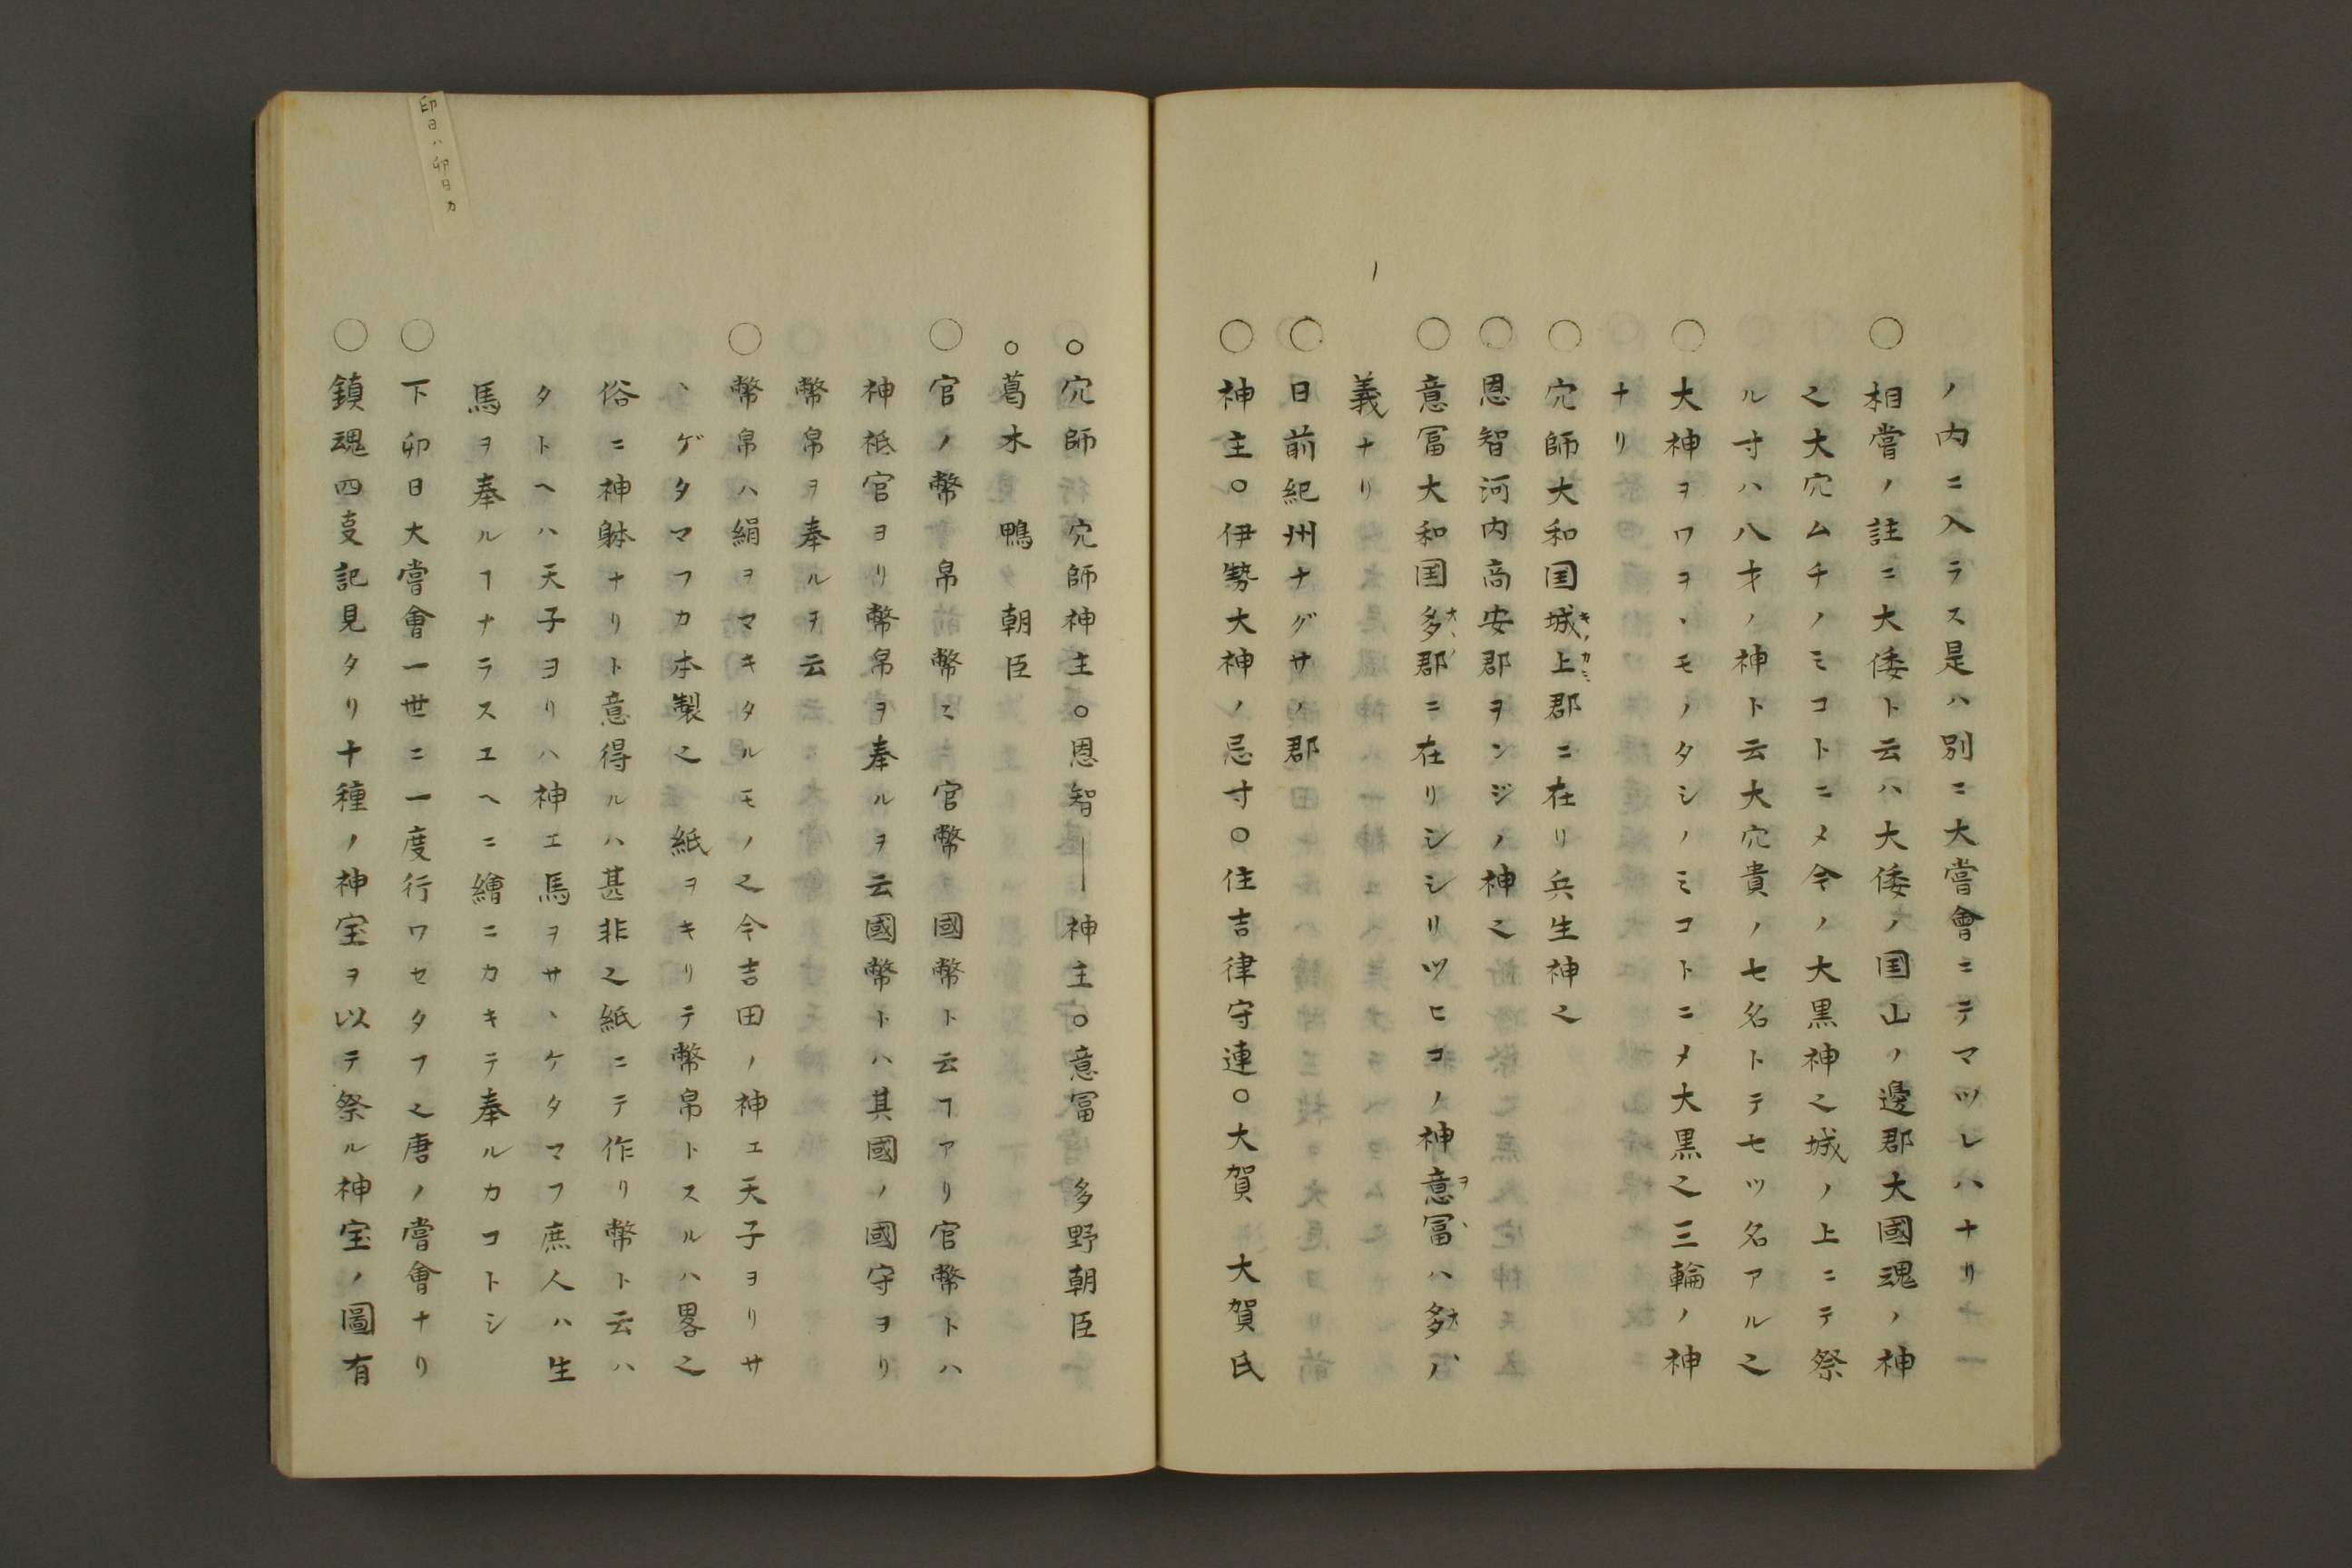 ノ内ニ入ラス是ハ別ニ大嘗會ニテマツレハナリ十一
○相嘗ノ註ニ大倭ト云ハ大倭ノ国山ノ邊郡大國魂ノ神
之大穴ムチノミコトニメ今ノ大黒神之城ノ上ニテ祭
ル寸ハ八才ノ神ト云大穴貴ノ七名トテセツ名アル之
○大神ヲワヲヽモノタシノミコトニメ大黒之三輪ノ神
ナリ
○穴師大和国城上郡ニ在リ兵生神之
キノカミ
○恩智河内高安郡ヲンジノ神之
○意冨大和国多郡ニ在リシシリツヒコノ神意冨ハ多ノ
義ナリ
○日前紀州ナグサノ郡
○神主○伊勢大神ノ忌寸○住吉律守連○大賀 大賀氏
○穴師 穴師神主○恩智｜神主○意冨 多野朝臣
○葛木 鴨 朝臣
○官ノ幣 帛幣ニ 官幣 國幣ト云ヿアリ官幣トハ
神祇官ヨリ幣帛ヲ奉ルヲ云國幣トハ其國ノ國守ヨリ
幣帛ヲ奉ルヲ云
○幣帛ハ絹ヲマキタルモノ之今吉田ノ神エ天子ヨリサ
ヽゲタマフカ本製之 紙ヲキリテ幣帛トスルハ畧之
俗ニ神躰ナリト意得ルハ甚非之紙ニテ作リ幣ト云ハ
タトヘハ天子ヨリハ神エ馬ヲサヽケタマフ庶人ハ生
馬ヲ奉ルヿナラスエヘニ繪ニカキテ奉ルカコトシ
○下卯日大嘗會一世ニ一度行ワセタフ之唐ノ嘗會ナリ
○鎮魂四㕝記見タリ十種ノ神宝ヲ以テ祭ル神宝ノ圖有
印日ハ卯日カ